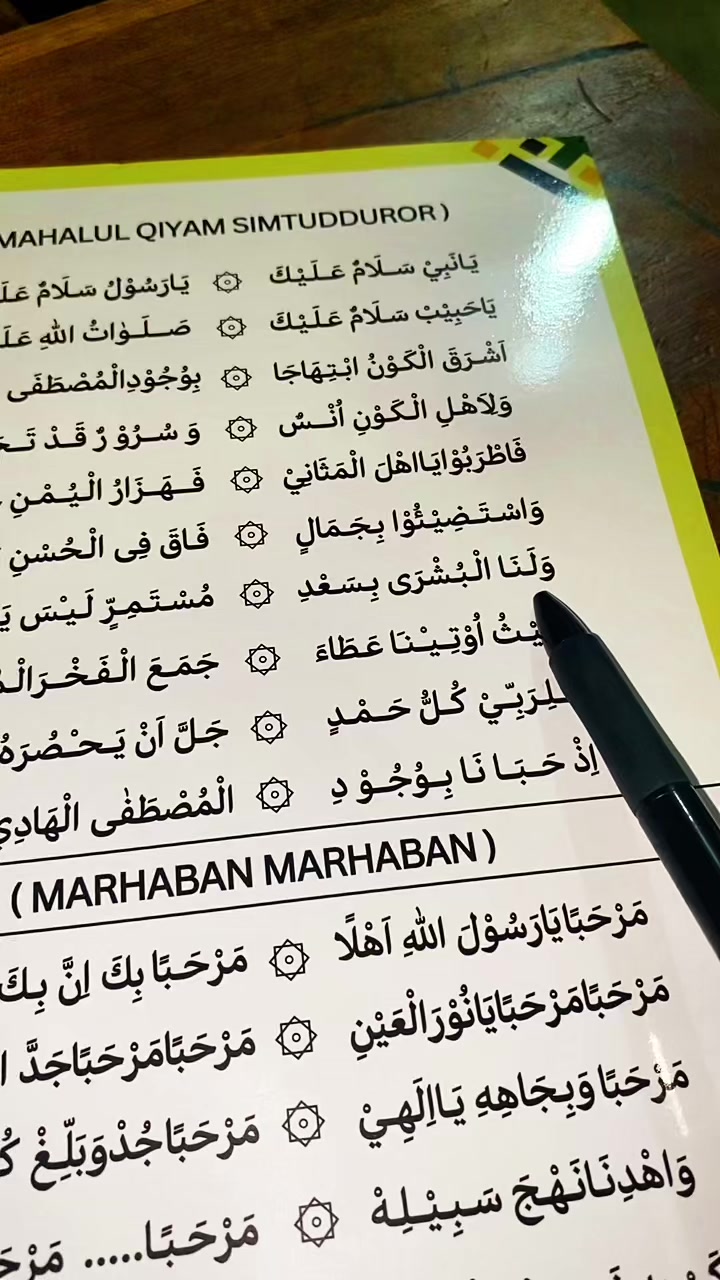 MAHALUL QIYAM SIMTUDDUROR )
يَانَبِيْ سَلَامٌ عَلَيْكَ ۞ يَارَسُوْلُ سَلَامٌ
يَاحَبِيْبْ سَلَامٌ عَلَيْكَ ۞ صَلَوٰاتُ اللهِ
أَشْرَقَ الْكَوْنُ ابْتِهَاجَا ۞ بِوُجُوْدِالْمُصْطَفَى
وَلِاَهْلِ الْكَوْنِ اُنْسٌ ۞ وَ سُرُوْ رٌ قَدْ
فَاطْرَبُوْايَااهْلَ الْمَثَانِيْ ۞ فَهَزَارُ الْيُمْنِ
وَاسْتَضِيْئُوْا بِجَمَالٍ ۞ فَاقَ فِى الْحُسْنِ
وَلَنَا الْبُشْرَى بِسَعْدِ ۞ مُسْتَمِرٍّ لَيْسَ
اُوْتِيْنَا عَطَاءَ ۞ جَمَعَ الْفَخْرَ
كُلُّ حَمْدٍ ۞ جَلَّ اَنْ يَحْصُرَهُ
اِذْ حَبَا نَا بِوُجُوْ دِ ۞ الْمُصْطَفٰى الْهَادِي
( MARHABAN MARHABAN )
مَرْحَبًايَارَسُوْلَ اللهِ اَهْلًا ۞ مَرْحَبًا بِكَ اِنَّ بِكَ
مَرْحَبًامَرْحَبًايَانُوْرَالْعَيْنِ ۞ مَرْحَبًامَرْحَبًاجَدَّ
مَرْحَبًاوَبِجَاهِهِ يَااِلَهِيْ ۞ مَرْحَبًاجُدْوَبَلِّغْ
وَاهْدِنَانَهْجَ سَبِيْلِهْ ۞ مَرْحَبًا.....